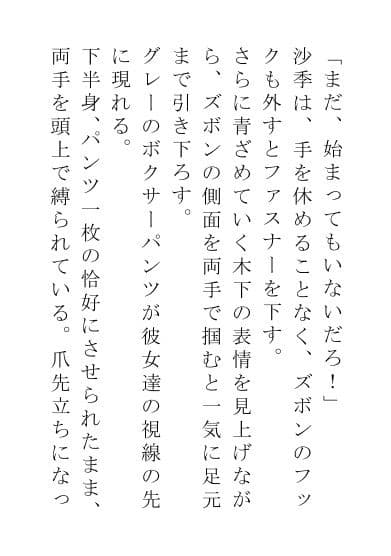 「まだ、始まってもいないだろ！」
沙季は、手を休めることなく、ズボンのフッ
クも外すとファスナーを下す。
さらに青ざめていく木下の表情を見上げなが
ら、ズボンの側面を両手で掴むと一気に足元
まで引き下ろす。
グレーのボクサーパンツが彼女達の視線の先
に現れる。
下半身、パンツ一枚の恰好にさせられたまま、
両手を頭上で縛られている。爪先立ちになっ